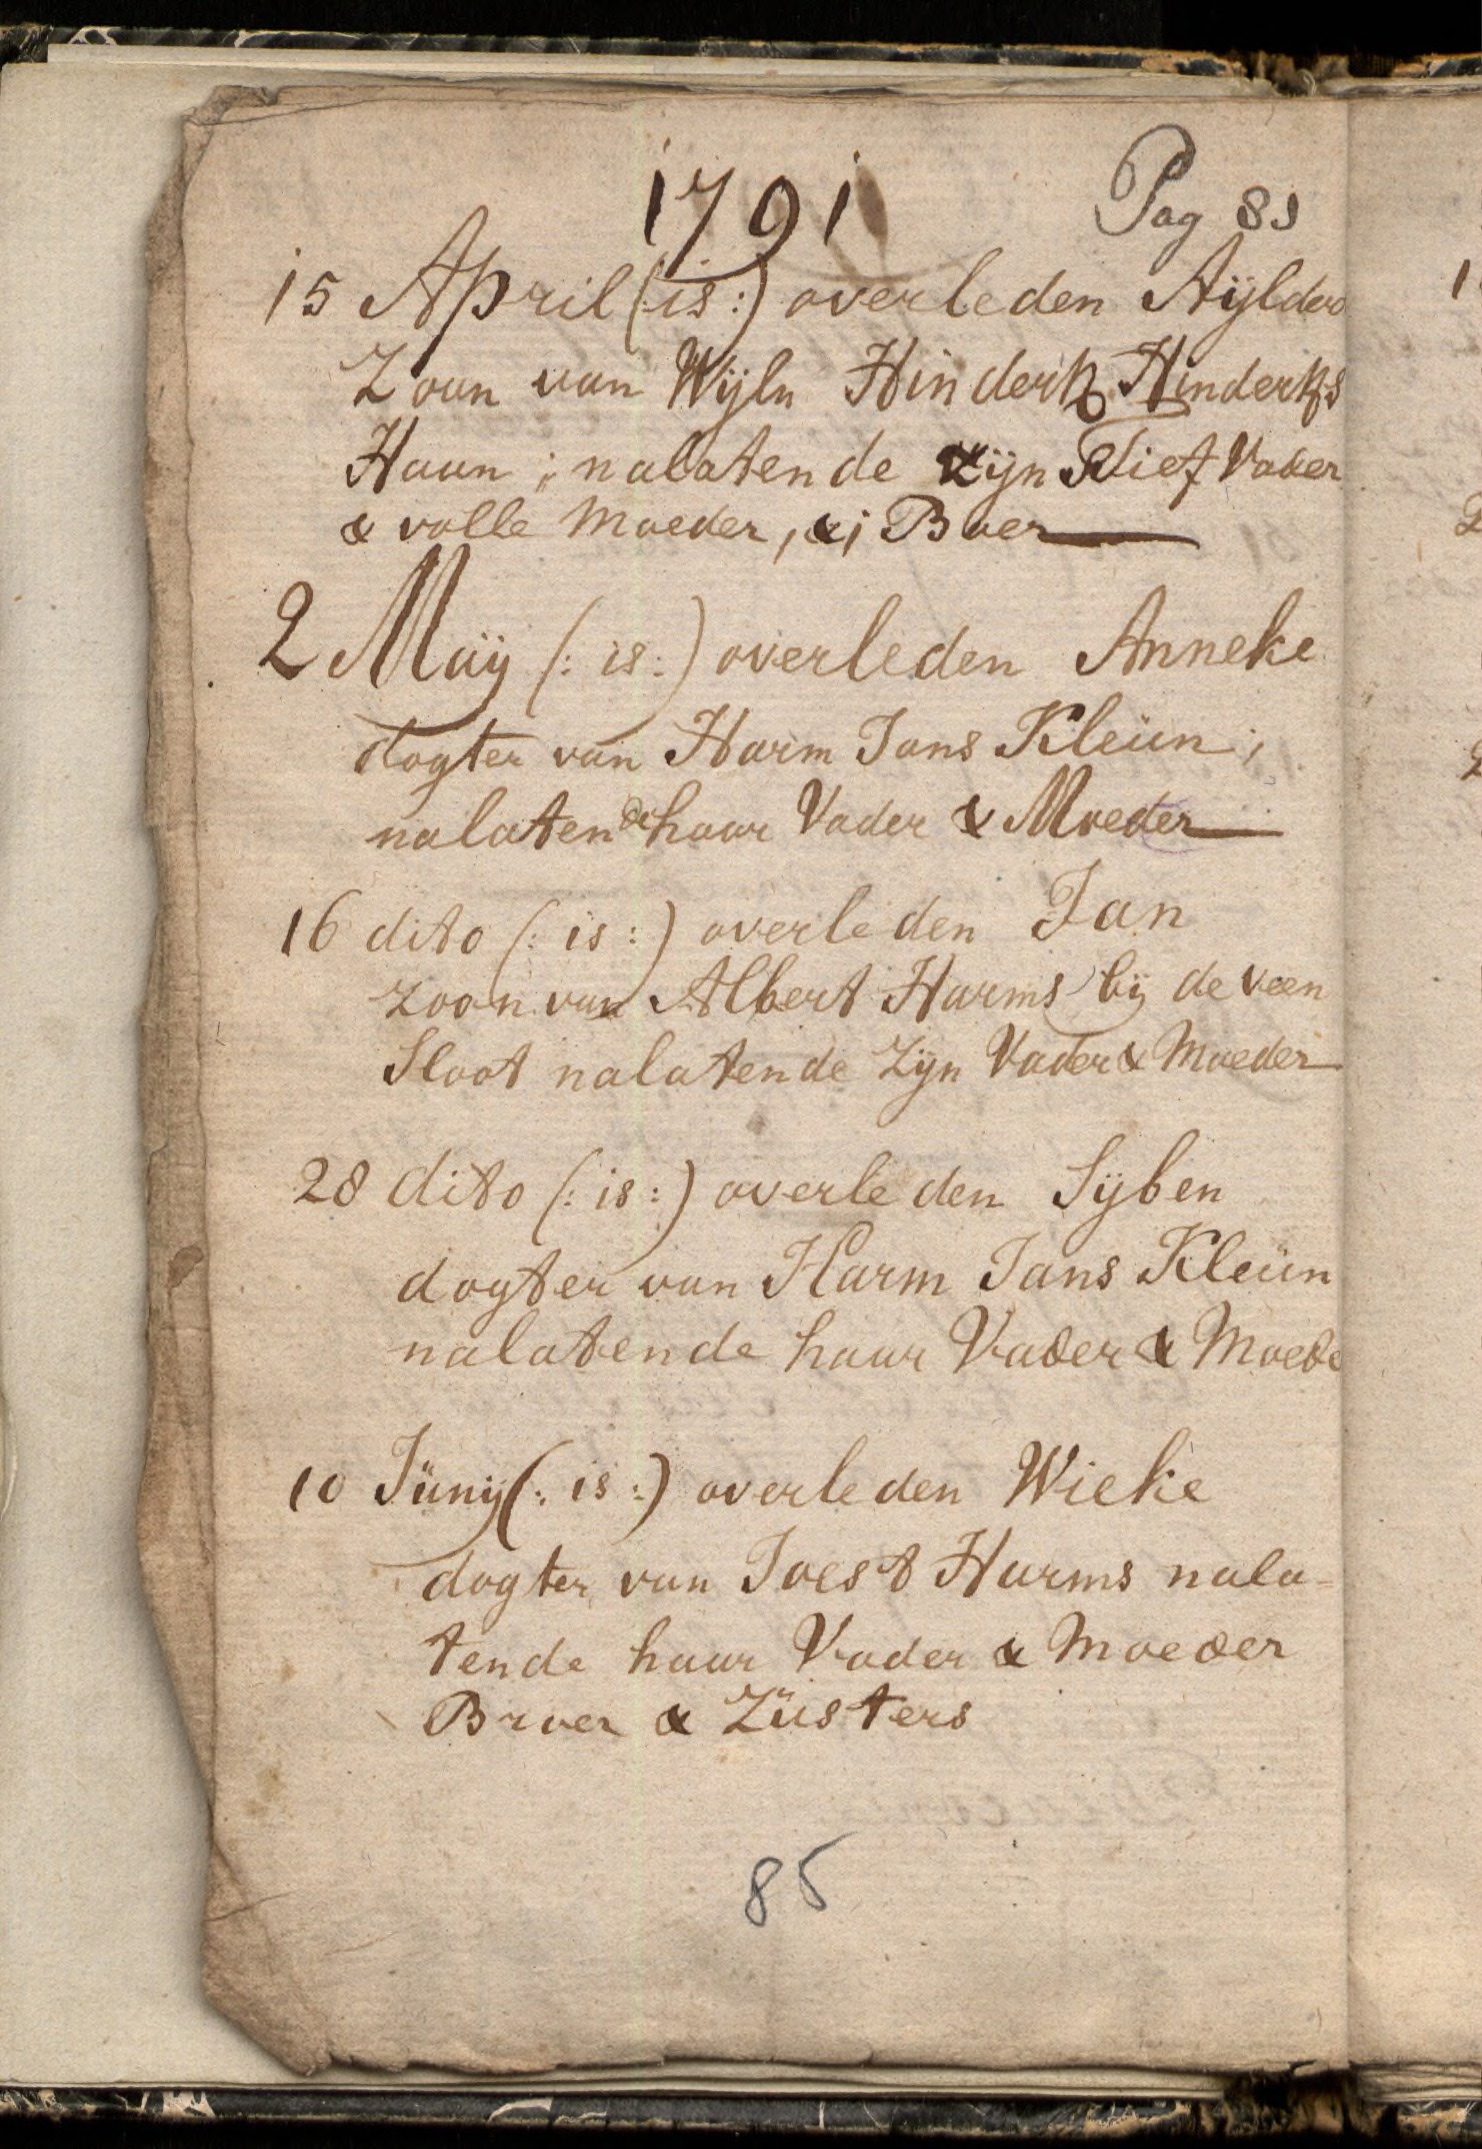 1791
Pag 81
15 April (: is :) overleden Aÿlders
Zoon van Wijln Hinderk Hinderks
Haan ; nalatende zijn Stief Vader
& volle Moeder, & 1 Boer
2 Maÿ (: is :) overleden Anneke
dogter van Harm Jans Kleün ;
nalatende haar Vader & Moeder
16 dito (: is :) overleden Jan
zoon van Albert Harms bij de veen
Sloot nalatende Zijn Vader & Moeder
28 dito (: is :) overleden Sÿben
dogter van Harm Jans Kleün
nalatende haar Vader & Moede
10 Jünij (: is :) overleden Wieke
dogter van Joest Harms nala=
tende haar Vader & Moeder
Broer & Züsters
85